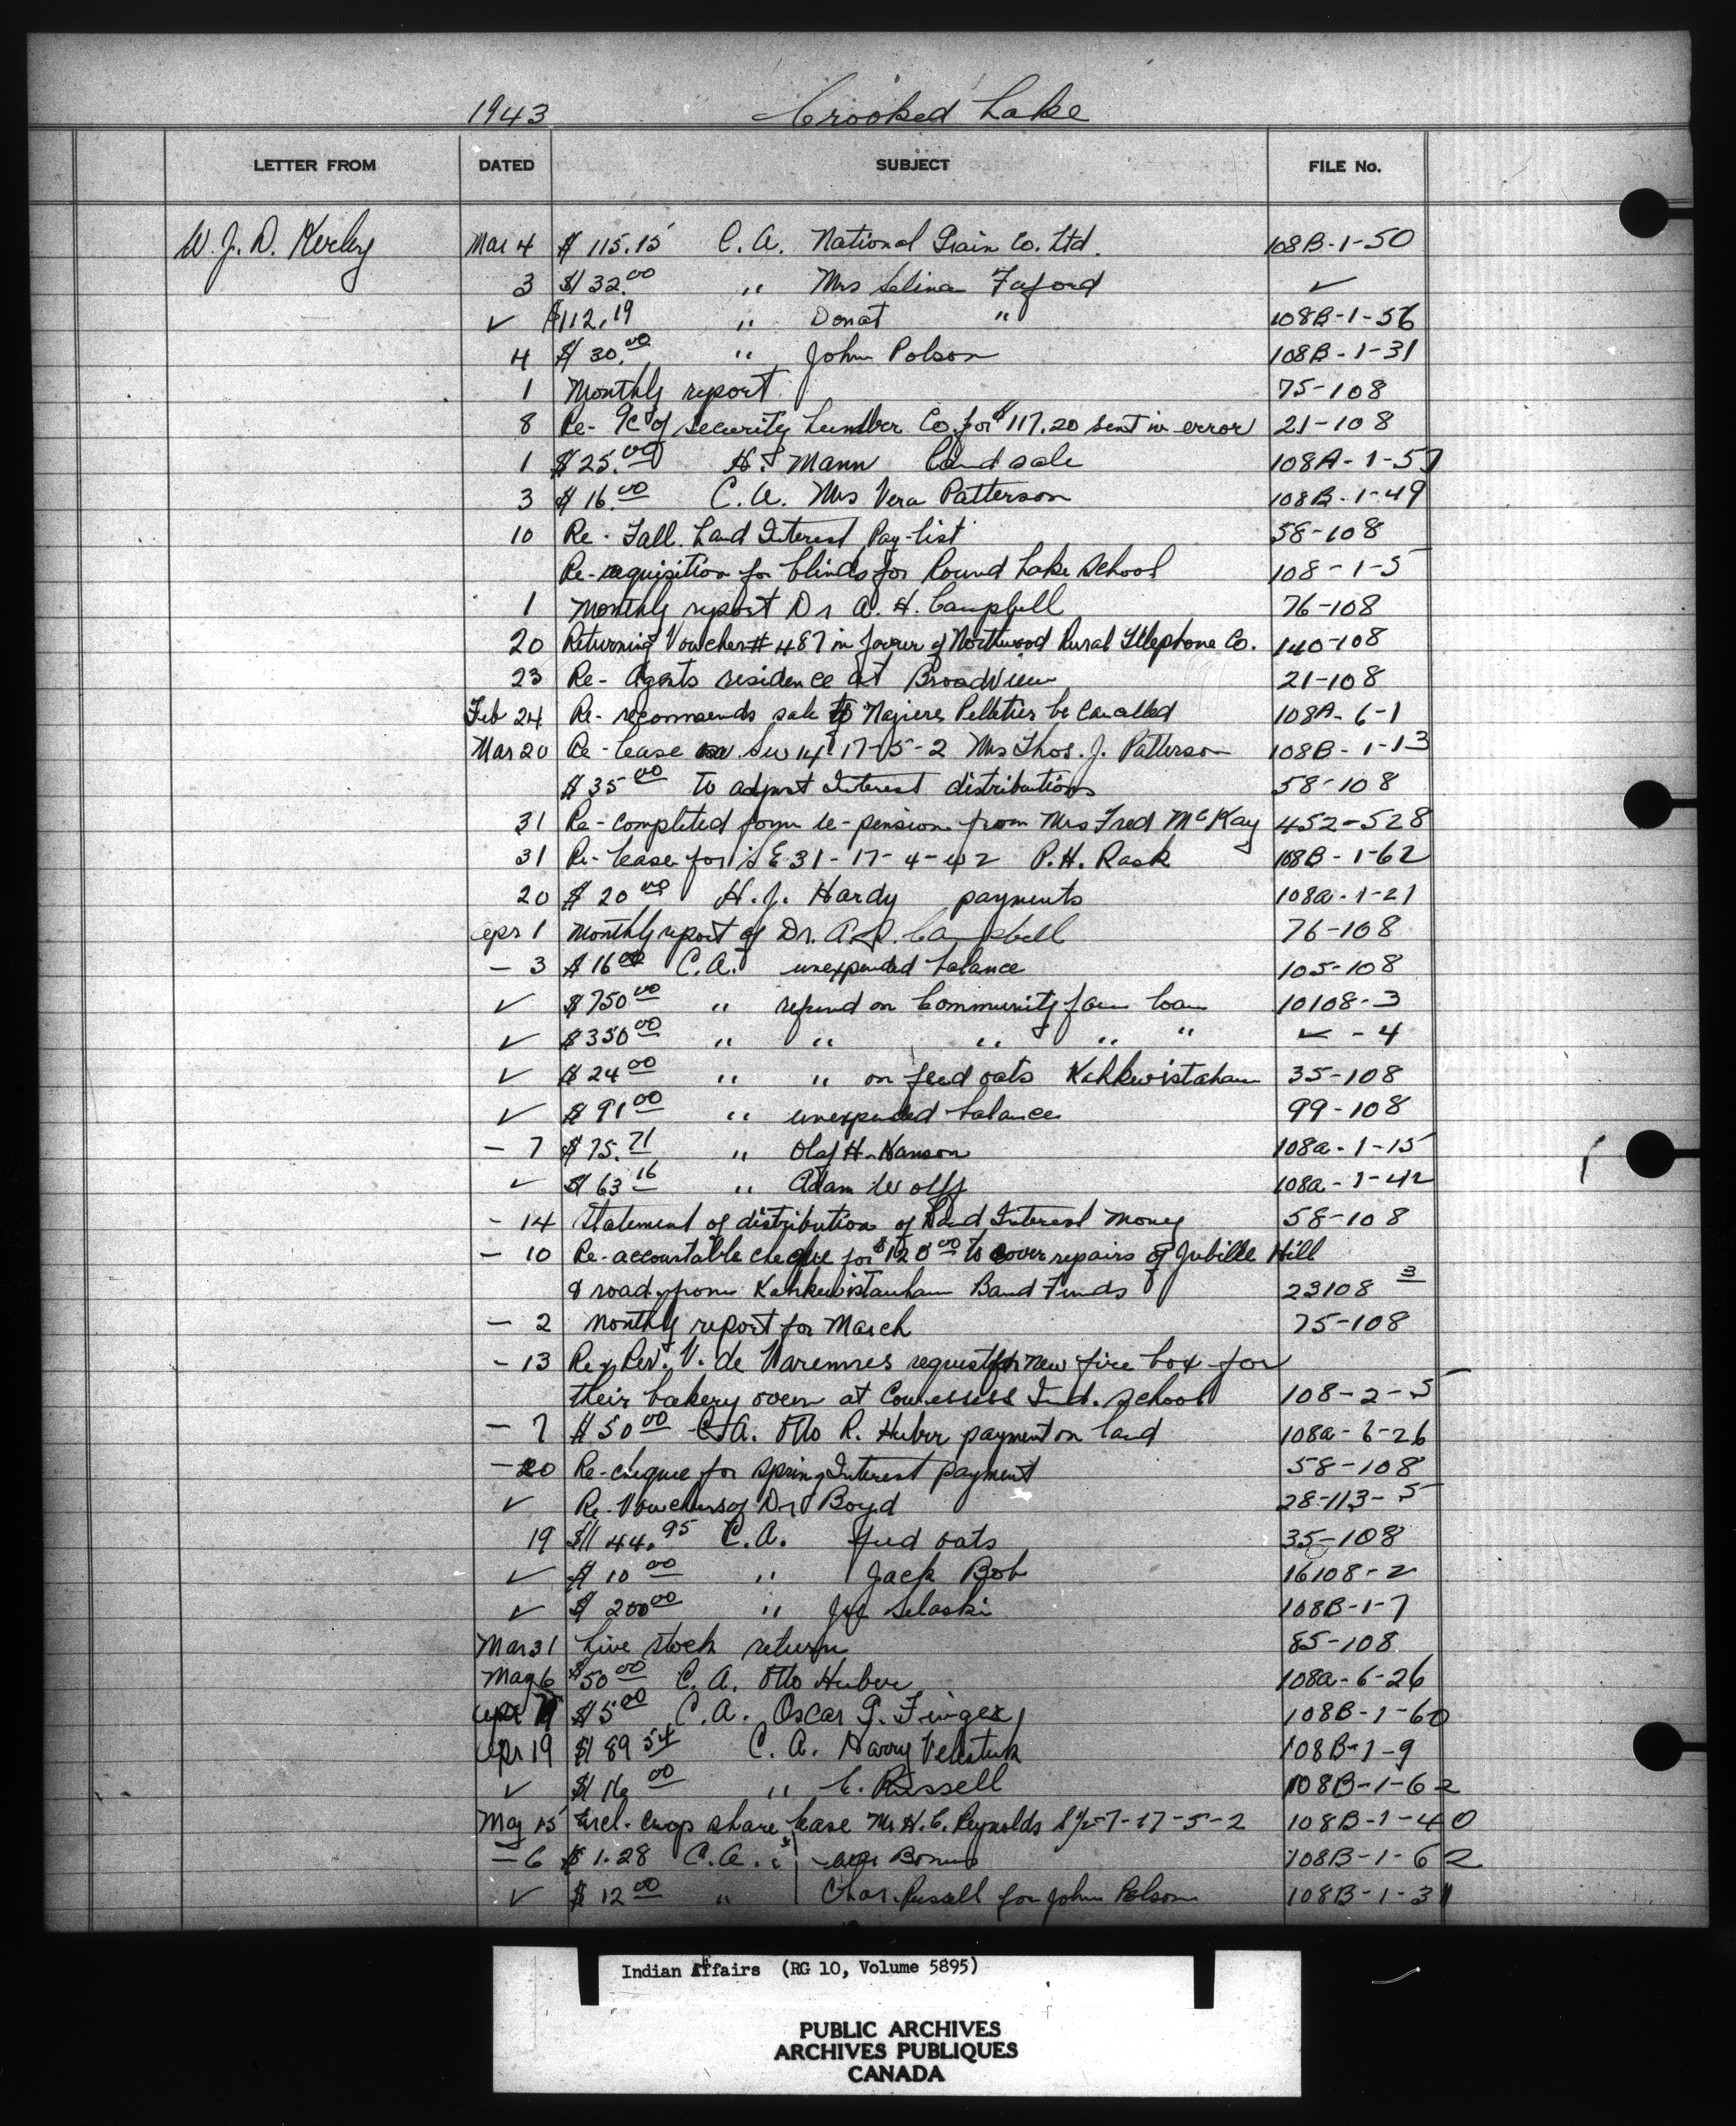 1943 Crooked Lake
LETTER FROM DATED SUBJECT FILE No.
W. J. D. Kerley Mar 4 $115.15 C.A. National Grain Co. Ltd. 108B-1-50
3 $132.00 " Mrs Selina Fayord ✓
✓ $112.19 " Donat " 108B-1-56
4 $130.00 " John Polson 108B-1-31
1 Monthly report 75-108
8 Re- a/c of Security Lumber Co. for $117.20 sent in error 21-108
1 $25.00 H. Mann land sale 108A-1-57
3 $16.00 C.A. Mrs Vera Patterson 108B-1-49
10 Re- Fall Land Interest Pay-list 58-108
Re-requisition for blinds for Round Lake School 108-1-5
1 Monthly report Dr A. H. Campbell 76-108
20 Returning Voucher # 487 in favour of Northwood Rural Telephone Co. 140-108
23 Re- Agents residence at Broadview 21-108
Feb 24 Re- recommends sale to Pelletier be Cancelled 108A-6-1
Mar 20 Re- lease on Sw 14-17-5-2 Mrs Thos. J. Patterson 108B-1-13
$35.00 to adjust Interest distributions 58-108
31 Re- Completed form re-pension from Mrs Fred McKay 452-528
31 Re- lease for SE 31-17-4-W2 P.H. Rask 108B-1-62
20 $20.00 H.J. Hardy payments 108a-1-21
Apr 1 Monthly report of Dr. A.H. Campbell 76-108
— 3 $16.00 C.A. unexpended balance 105-108
✓ $750.00 " refund on Community farm loan 10108-3
✓ $350.00 " " " " " ✓ -4
✓ $24.00 " " on feed oats Kahkewistahaw 35-108
✓ $91.00 " unexpended balance 99-108
— 7 $75.71 " Olaf H. Hanson 108a-1-15
✓ $163.16 " Adam Wolff 108a-1-42
- 14 Statement of distribution of Land Interest Money 58-108
— 10 Re- accountable cheque for $120.00 to cover repairs of Jubille Hill
& road from Kahkewistanhaw Band Funds 23108-3
— 2 Monthly report for March 75-108
- 13 Re- Rev. V. de Varennes request for new fire box for
their bakery oven at Cowessess Ind. School 108-2-5
— 7 $50.00 C.A. Otto R. Huber payment on land 108a-6-26
— 20 Re-cheque for Spring Interest payment 58-108
✓ Re- Vouchers of Dr Boyd 28-113-5
19 $1144.95 C.A. feed oats 35-108
✓ $10.00 " Jack Bob 16108-2
✓ $200.00 " Joe Selaski 108B-1-7
Mar 31 Live stock return 85-108
May 6 $50.00 C.A. Otto Huber 108a-6-26
Apr $5.00 C.A. Oscar G. Finger 108B-1-60
Apr 19 $189.54 C.A. Harry 108B-1-9
✓ $116.00 " C. Russell 108B-1-62
May 15 Encl. crop share lease Mr H.C. Reynolds S½-7-17-5-2 108B-1-40
— 6 $1.28 C.A. 108B-1-62
✓ $12.00 " Chas. Russell for John Polson 108B-1-31
Indian Affairs (RG 10, Volume 5895)
PUBLIC ARCHIVES
ARCHIVES PUBLIQUES
CANADA